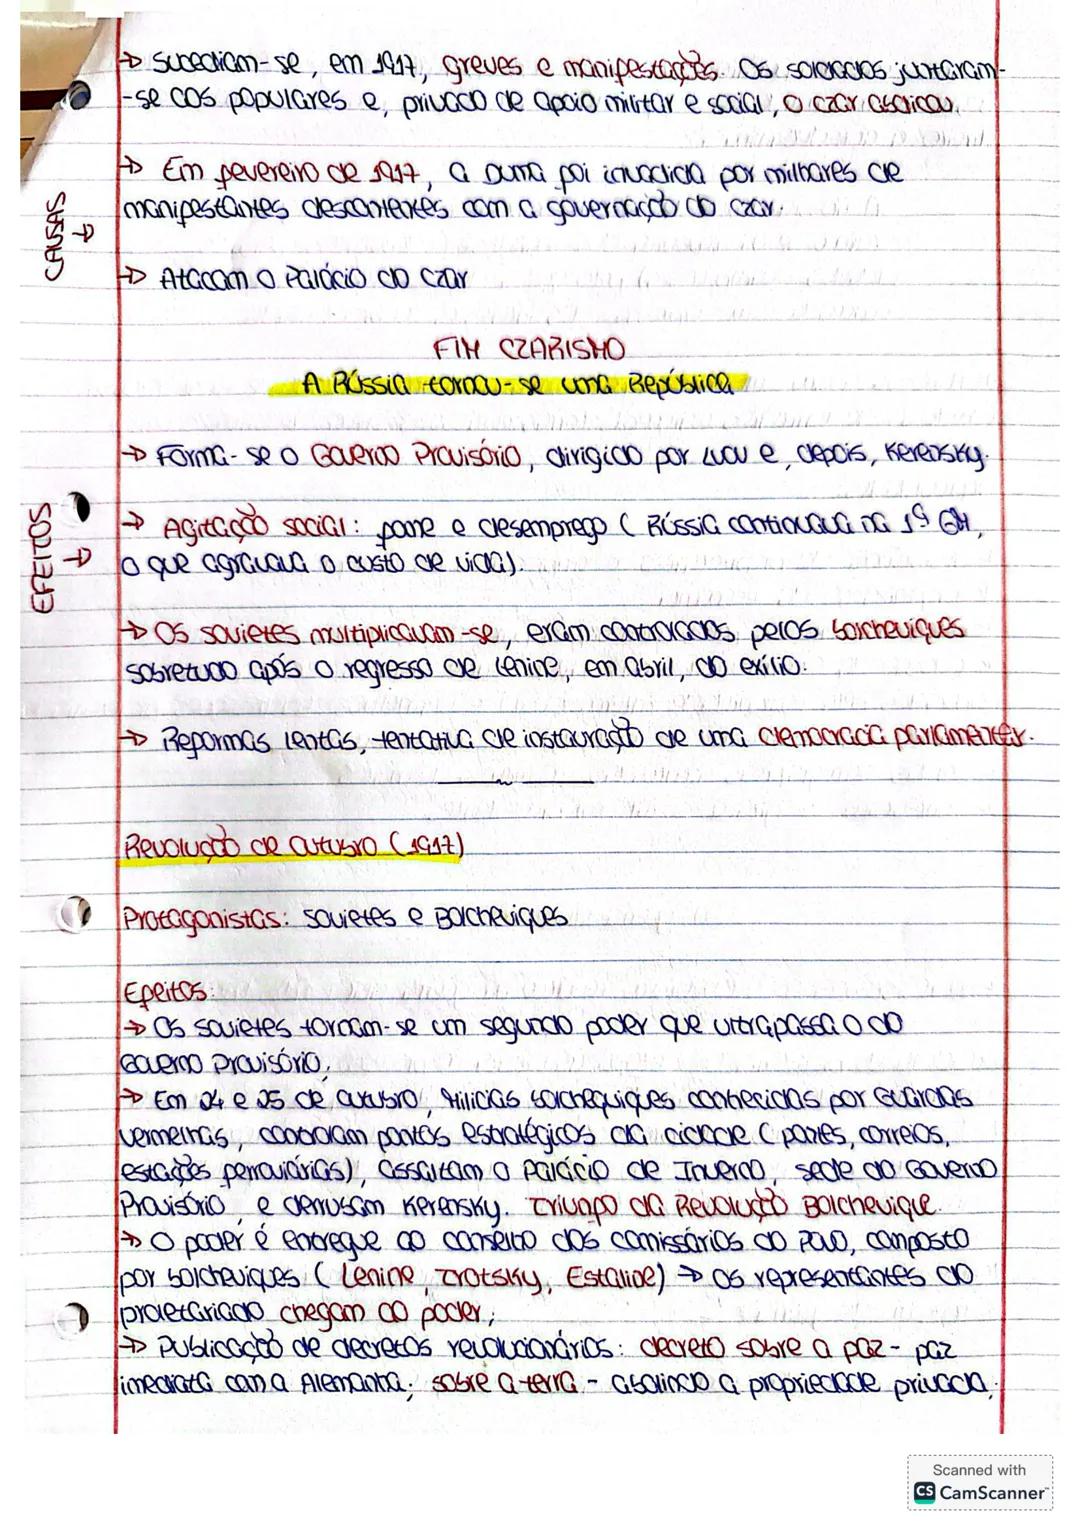 → Sucediam-se, em 1917, greves e manifestações. Os soldados juntaram-
-se aos populares e, privado de apoio militar e social, o czar abdicou.
→ Em fevereiro de 1917, a Duma foi invadida por milhares de
manifestantes descontentes com a governação do czar.
→ Atacam o Palácio do czar
CAUSAS →
FIM CZARISMO
A Rússia tornou-se uma República
→ Forma-se o Governo Provisório, dirigido por Lvov e, depois, Kerensky.
→ Agitação social: fome e desemprego (Rússia continuava na 1ª GM,
o que agravava o custo de vida).
EFEITOS →
→ Os sovietes multiplicavam-se, eram controlados pelos bolcheviques
sobretudo após o regresso de Lenine, em abril, do exílio.
→ Reformas lentas, tentativa de instauração de uma democracia parlamentar.
Revolução de outubro (1917)
Protagonistas: sovietes e Bolcheviques
Efeitos:
→ Os sovietes tornam-se um segundo poder que ultrapassa o do
Governo Provisório;
→ Em 24 e 25 de outubro, milícias bolcheviques conhecidas por Guardas
vermelhas, controlam pontos estratégicos da cidade (pontes, correios,
estações ferroviárias), assaltam o Palácio de Inverno, sede do Governo
Provisório, e derrubam Kerensky. Triunfo da Revolução Bolchevique.
→ O poder é entregue ao conselho dos comissários do Povo, composto
por bolcheviques (Lenine, Trotsky, Estaline) → os representantes do
proletariado chegam ao poder;
→ Publicação de decretos revolucionários: decreto sobre a paz - paz
imediata com a Alemanha; sobre a terra - abolindo a propriedade privada;
Scanned with
CS CamScanner